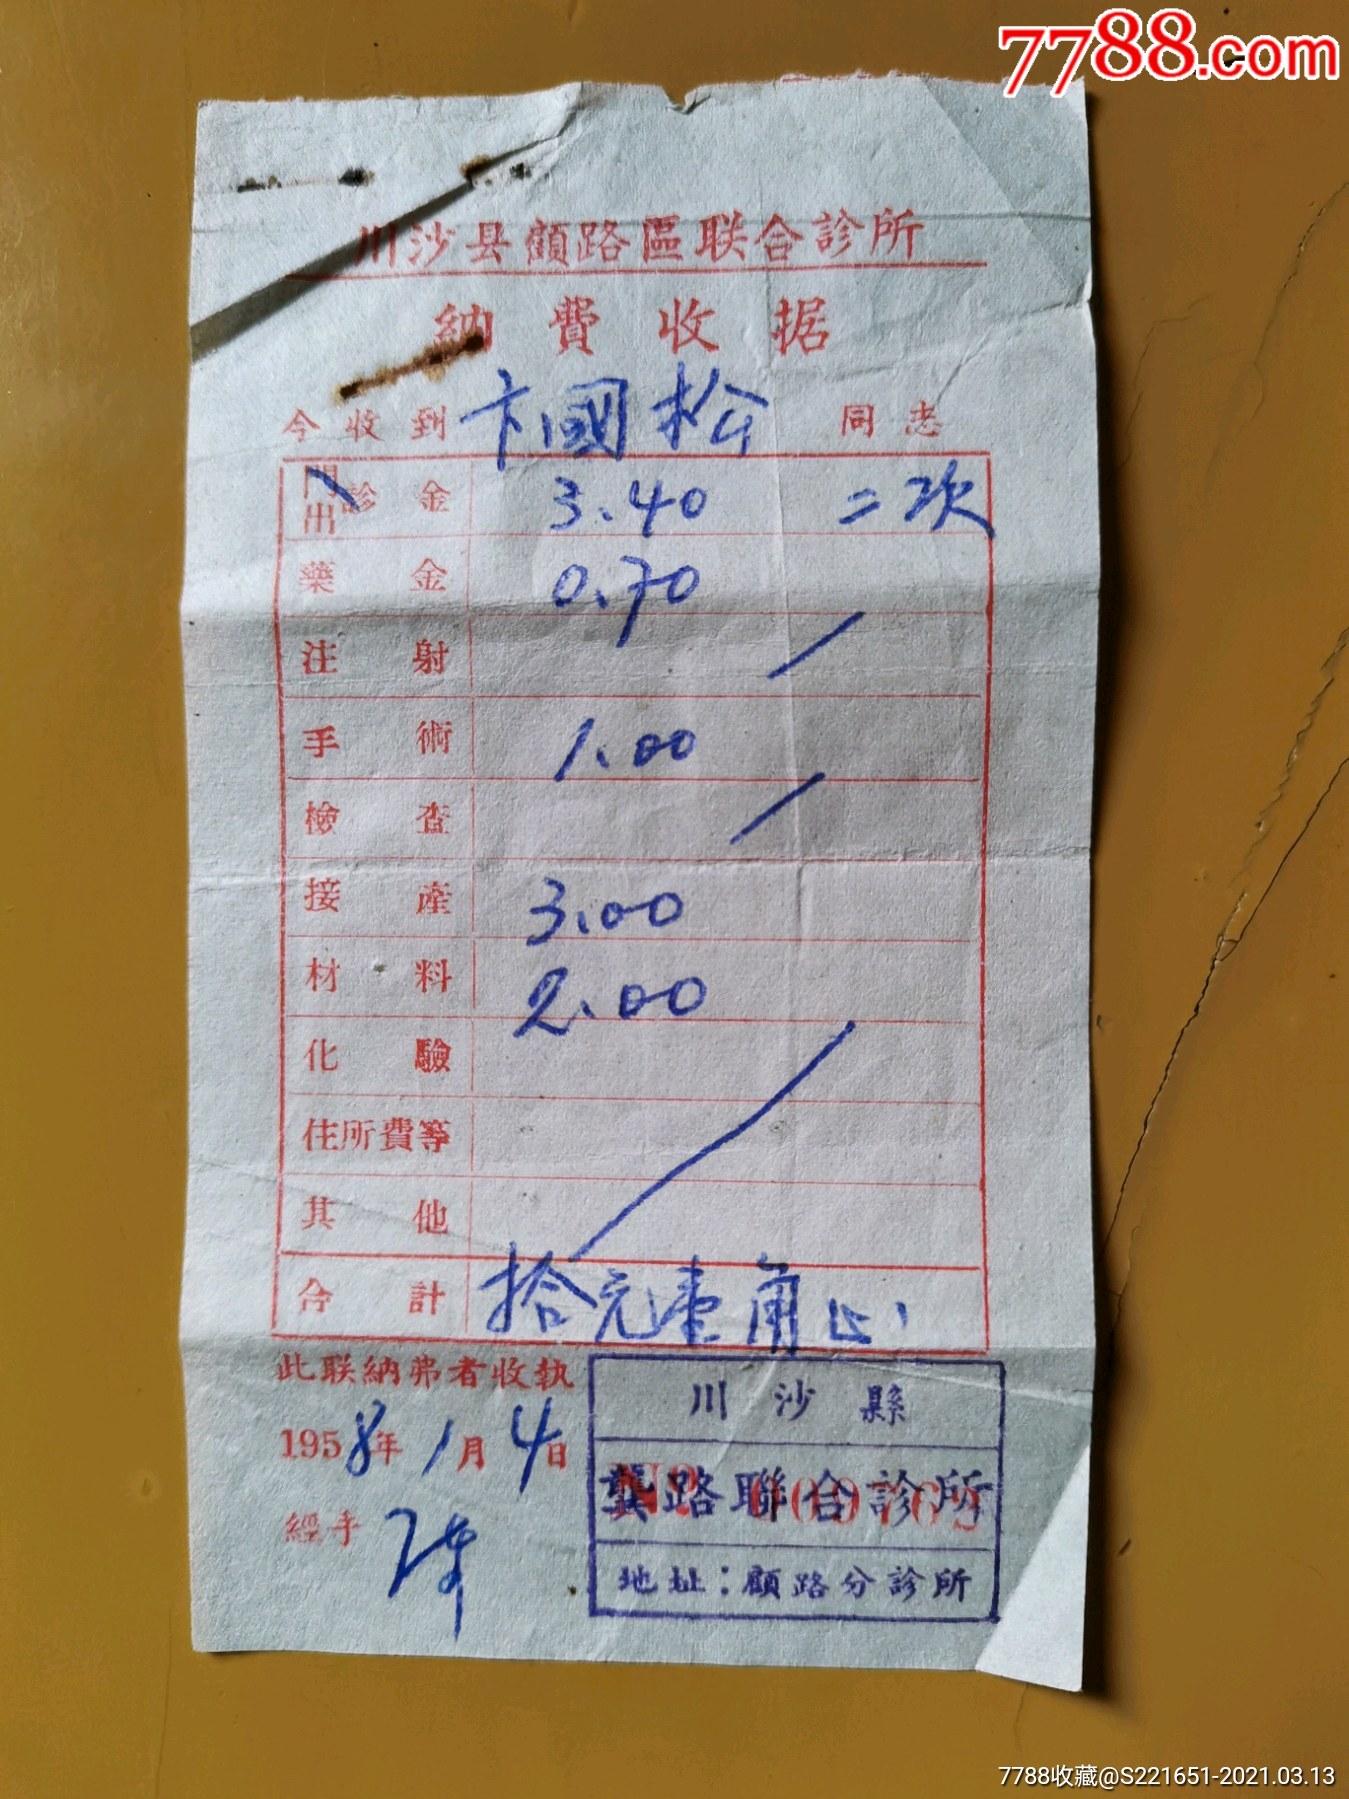 7788.com
川沙县顧路區联合診所
納費收据
今收到 卞國松 同志
門出診金 3.40 二次
藥金 0.70
注射
手術 1.00
檢查
接產 3.00
材料 2.00
化驗
住所費等
其他
合計 拾元壹角正
此联納弗者收执
1958年1月4日
經手
川沙縣
龔路聯合診所
地址：顧路分診所
7788收藏@S221651-2021.03.13